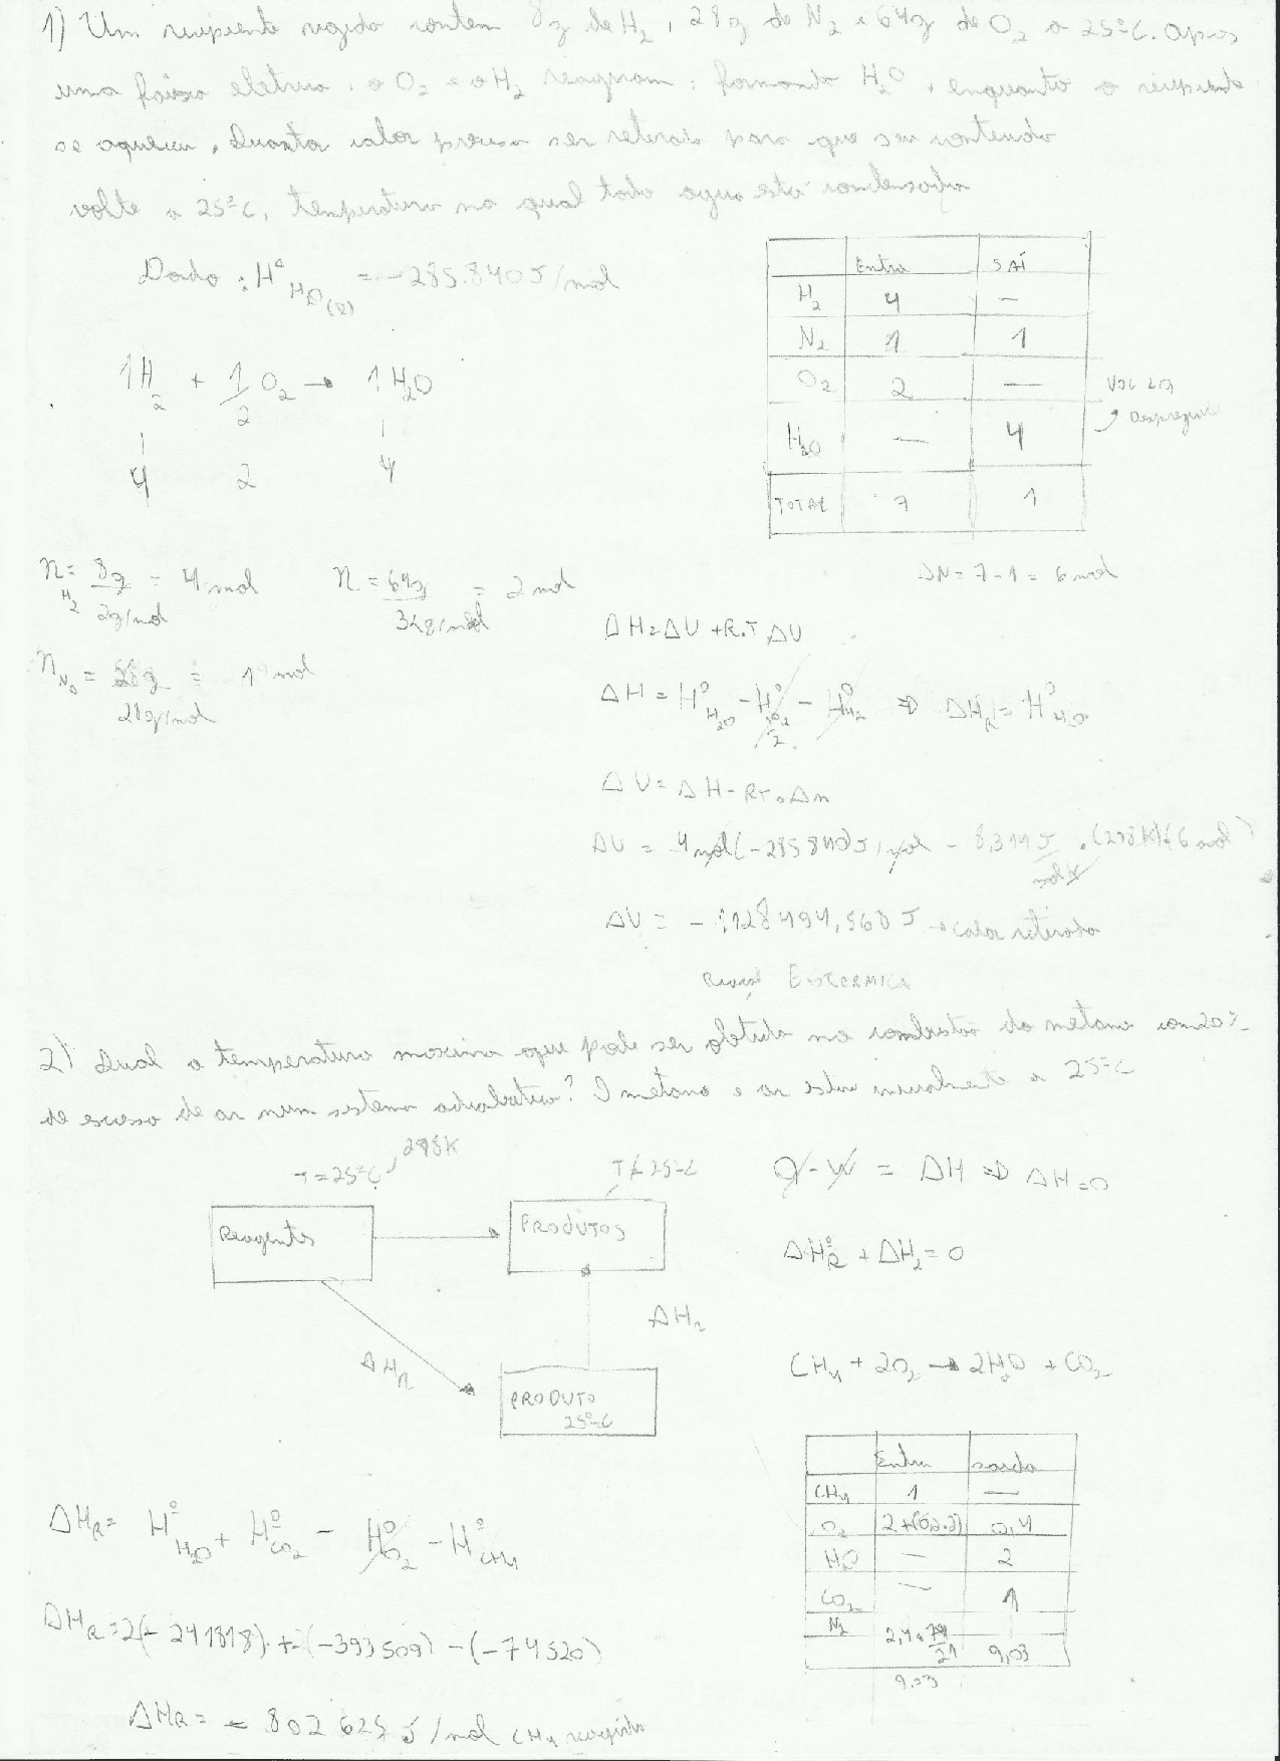 1) Um recipiente rígido contem 8g de H2, 28g de N2 e 64g de O2 a 25°C. Apos
uma faísca eletrica, o O2 e o H2 reagiram: formando H2O, enquanto o recipiente
se aqueceu. Quanto calor precisa ser retirado para que seu conteúdo
volte a 25°C, temperatura na qual toda agua está condensada
Dado: H°H2O(l) = -285.840J/mol
Entra SAÍ
H2 4 —
N2 1 1
O2 2 —
H2O — 4
TOTAL 7 1
1H2 + 1/2 O2 → 1H2O
4 2 4
ΔN = 7-1 = 6 mol
n H2 = 8g / 2g/mol = 4 mol n = 64g / 32g/mol = 2 mol
n = 28g / 28g/mol = 1 mol
ΔH = ΔU + R.T ΔU
ΔH = H°H2O - H°O2/2 - H°H2 ⇒ ΔHR = H°H2O
ΔU = ΔH - RT.Δn
ΔU = 4mol(-285840J/mol - 8,314J/molK . (298K)(6 mol)
ΔU = -1128494,560J → calor retirado
Reação EXOTERMICA
2) Qual a temperatura maxima que pode ser obtida na combustão do metano com 20%
de excesso de ar num sistema adiabatico? O metano e ar estão inicialmente a 25°C
T = 25°C, 298K T≠25°C
Reagentes PRODUTOS
ΔHR ΔH2
PRODUTO
25°C
Q - W = ΔH ⇒ ΔH = 0
ΔH°R + ΔH2 = 0
CH4 + 2O2 → 2H2O + CO2
Entra saida
CH4 1 —
O2 2+(0,2.2) 0,4
H2O — 2
CO2 — 1
N2 2,4.79/21 9,03
9,03
ΔHR = H°H2O + H°CO2 - H°O2 - H°CH4
ΔHR = 2(-241818) + (-393509) - (-74520)
ΔHR = -802625 J/mol CH4 reagido